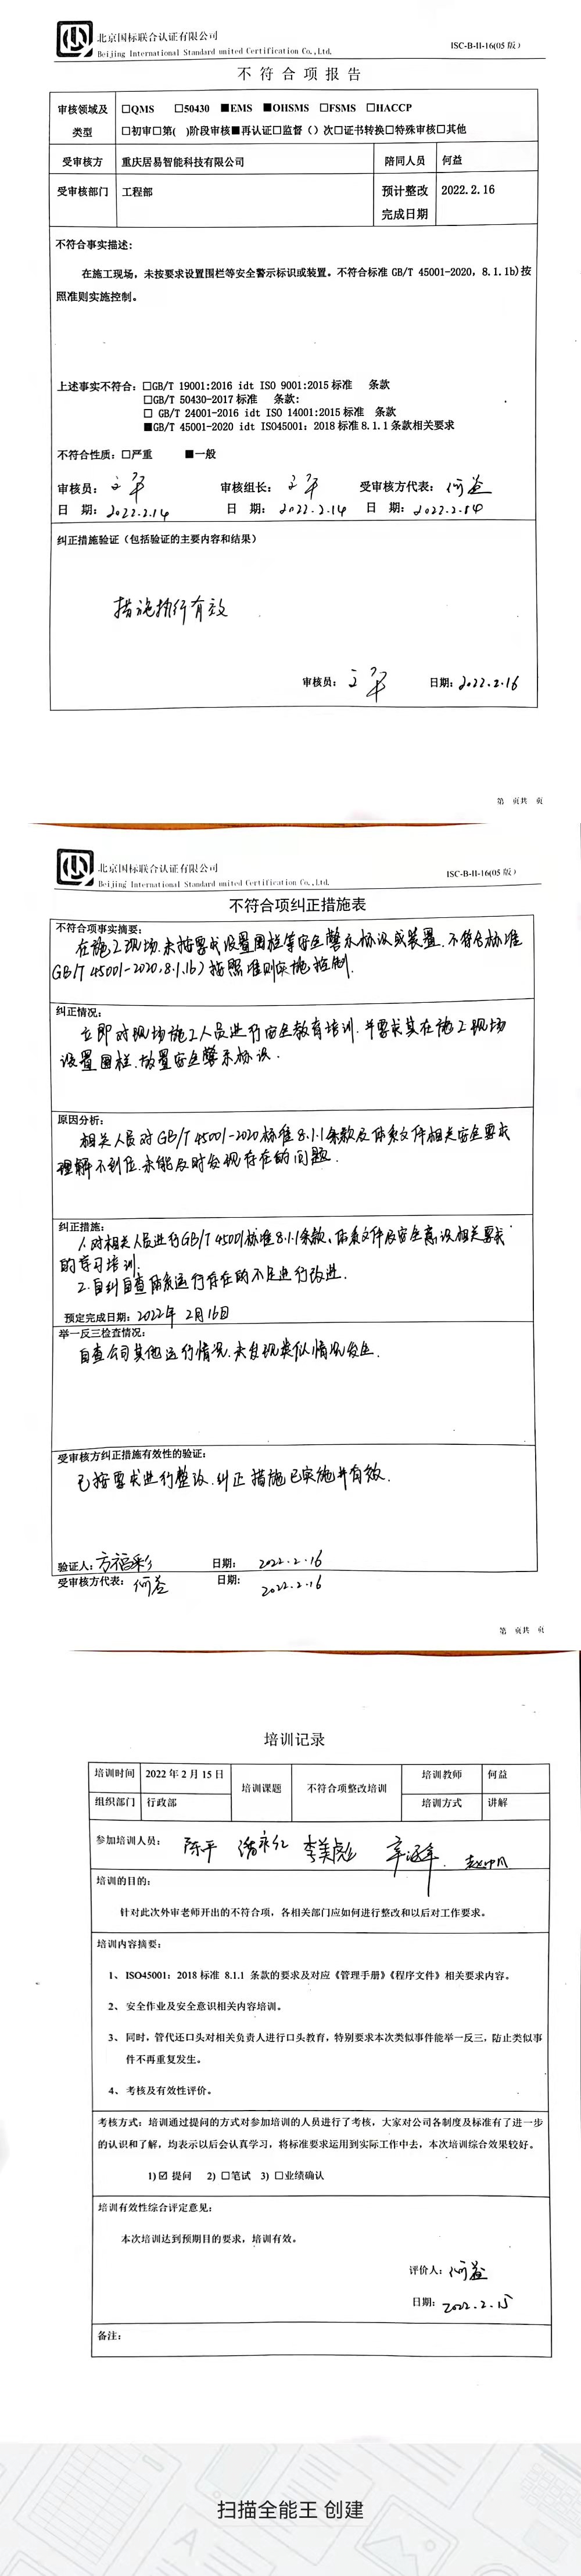 北京国标联合认证有限公司
Beijing International Standard united Certification Co.,Ltd.
ISC-B-II-16(05 版)
不符合项报告
审核领域及类型
□QMS □50430 ■EMS ■OHSMS □FSMS □HACCP
□初审□第( )阶段审核■再认证□监督（）次□证书转换□特殊审核□其他
受审核方 重庆居易智能科技有限公司 陪同人员 何益
受审核部门 工程部 预计整改完成日期 2022.2.16
不符合事实描述:
在施工现场，未按要求设置围栏等安全警示标识或装置。不符合标准 GB/T 45001-2020，8.1.1b)按
照准则实施控制。
上述事实不符合: □GB/T 19001:2016 idt ISO 9001:2015 标准 条款
□GB/T 50430-2017 标准 条款:
□ GB/T 24001-2016 idt ISO 14001:2015 标准 条款
■GB/T 45001-2020 idt ISO45001: 2018 标准 8.1.1 条款相关要求
不符合性质: □严重 ■一般
审核员: 审核组长: 受审核方代表: 何益
日 期: 2022.2.14 日 期: 2022.2.14 日 期: 2022.2.14
纠正措施验证（包括验证的主要内容和结果）
措施执行有效
审核员: 日期: 2022.2.16
第 页共 页
北京国标联合认证有限公司
Beijing International Standard united Certification Co.,Ltd.
ISC-B-II-16(05 版)
不符合项纠正措施表
不符合项事实摘要:
在施工现场,未按要求设置围栏等安全警示标识或装置.不符合标准
GB/T 45001-2020.8.1.1b)按照准则实施控制.
纠正情况:
立即对现场施工人员进行安全教育培训.并要求其在施工现场
设置围栏、放置安全警示标识.
原因分析:
相关人员对GB/T 45001-2020标准8.1.1条款及体系文件相关安全要求
理解不到位.未能及时发现存在的问题.
纠正措施:
1.对相关人员进行GB/T 45001标准8.1.1条款、体系文件及安全意识相关要求
的学习培训.
2.自纠自查体系运行存在的不足进行改进.
预定完成日期: 2022年 2月16日
举一反三检查情况:
自查公司其他运行情况.未发现类似情况发生.
受审核方纠正措施有效性的验证:
已按要求进行整改.纠正措施已实施并有效.
验证人: 方福彩 日期: 2022.2.16
受审核方代表: 何益 日期: 2022.2.16
第 页共 页
培训记录
培训时间 2022 年 2 月 15 日 培训课题 不符合项整改培训 培训教师 何益
组织部门 行政部 培训方式 讲解
参加培训人员: 陈平
培训的目的:
针对此次外审老师开出的不符合项，各相关部门应如何进行整改和以后对工作要求。
培训内容摘要:
1、 ISO45001: 2018 标准 8.1.1 条款的要求及对应《管理手册》《程序文件》相关要求内容。
2、 安全作业及安全意识相关内容培训。
3、 同时，管代还口头对相关负责人进行口头教育，特别要求本次类似事件能举一反三，防止类似事
件不再重复发生。
4、 考核及有效性评价。
考核方式: 培训通过提问的方式对参加培训的人员进行了考核，大家对公司各制度及标准有了进一步
的认识和了解，均表示以后会认真学习，将标准要求运用到实际工作中去，本次培训综合效果较好。
1) ☑ 提问 2) □笔试 3) □业绩确认
培训有效性综合评定意见:
本次培训达到预期目的要求，培训有效。
评价人: 何益
日期: 2022.2.15
备注:
扫描全能王 创建